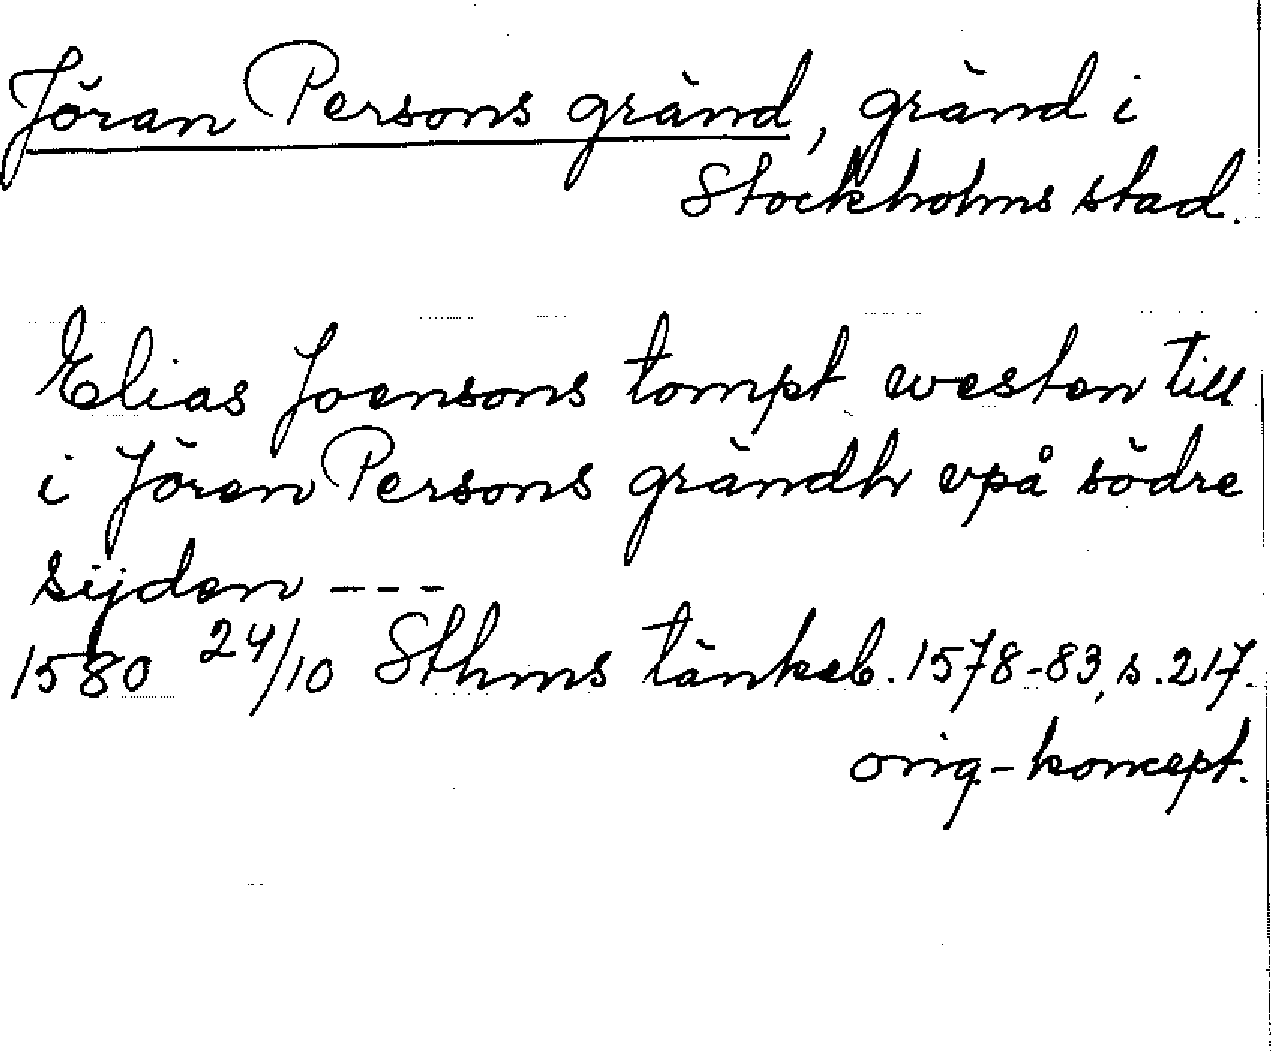 Jöran Persons gränd, gränd i
Stockholms stad.
Elias Joensons tompt westen till
i Jören Persons grändh vpå södre
sijden ---
1580 24/10 Sthms tänkeb. 1578-83, s. 217.
orig-koncept.